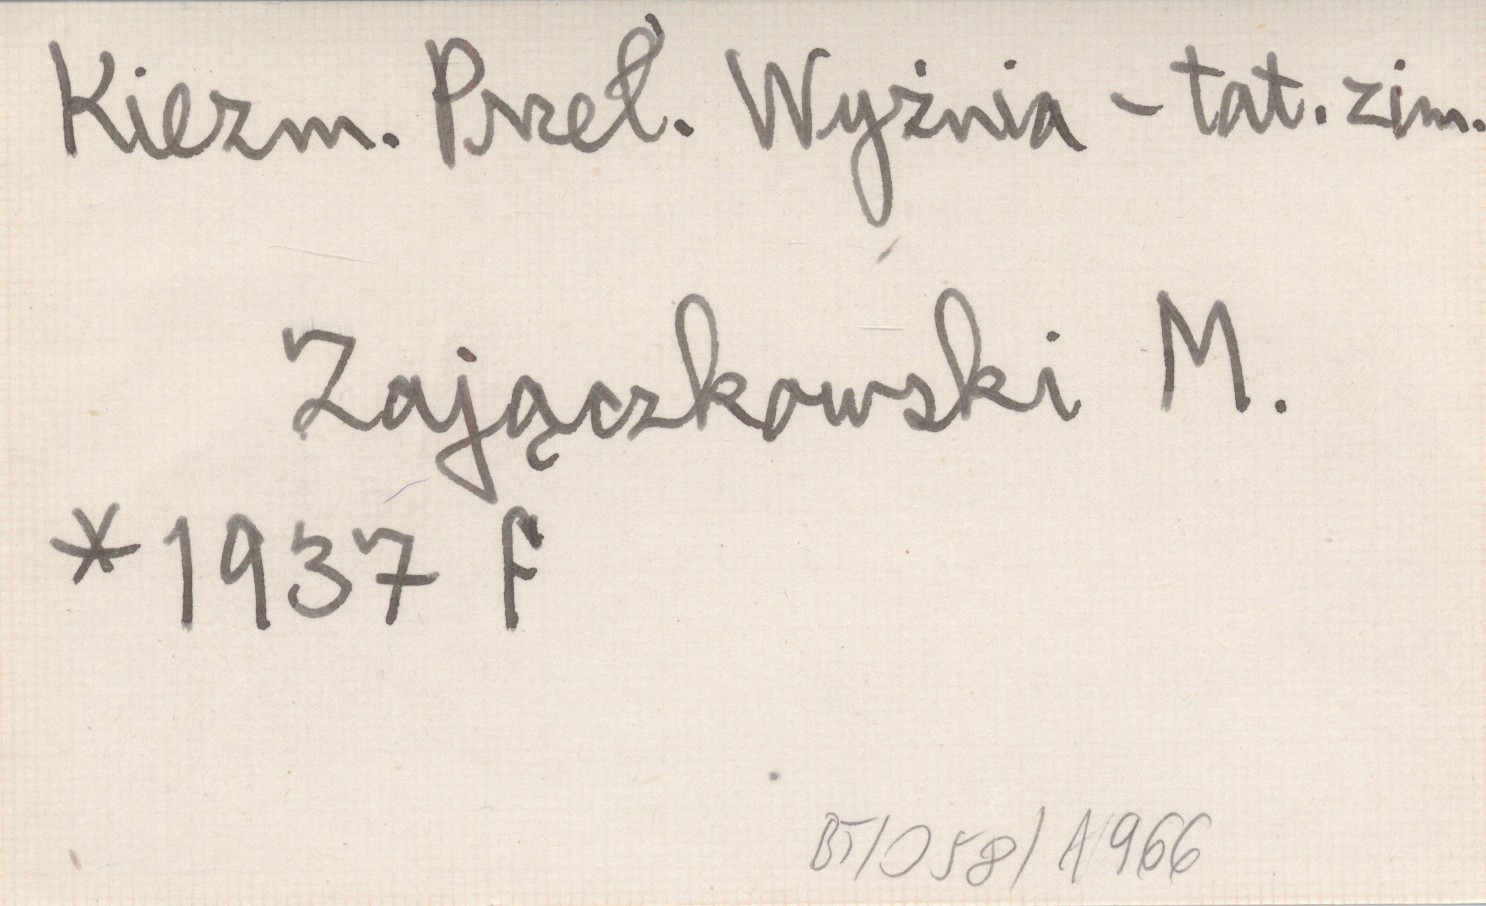 Kiezm. Przeł. Wyżnia - tat. zim.
Zajączkowski M.
* 1937 F
BT/058/1966